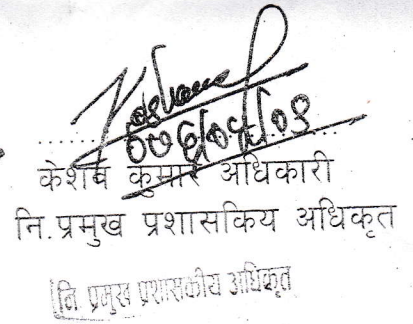 केशब कुमार अधिकारी
नि.प्रमुख प्रशासकिय अधिकृत
नि. प्रमुख प्रशासकीय अधिकृत